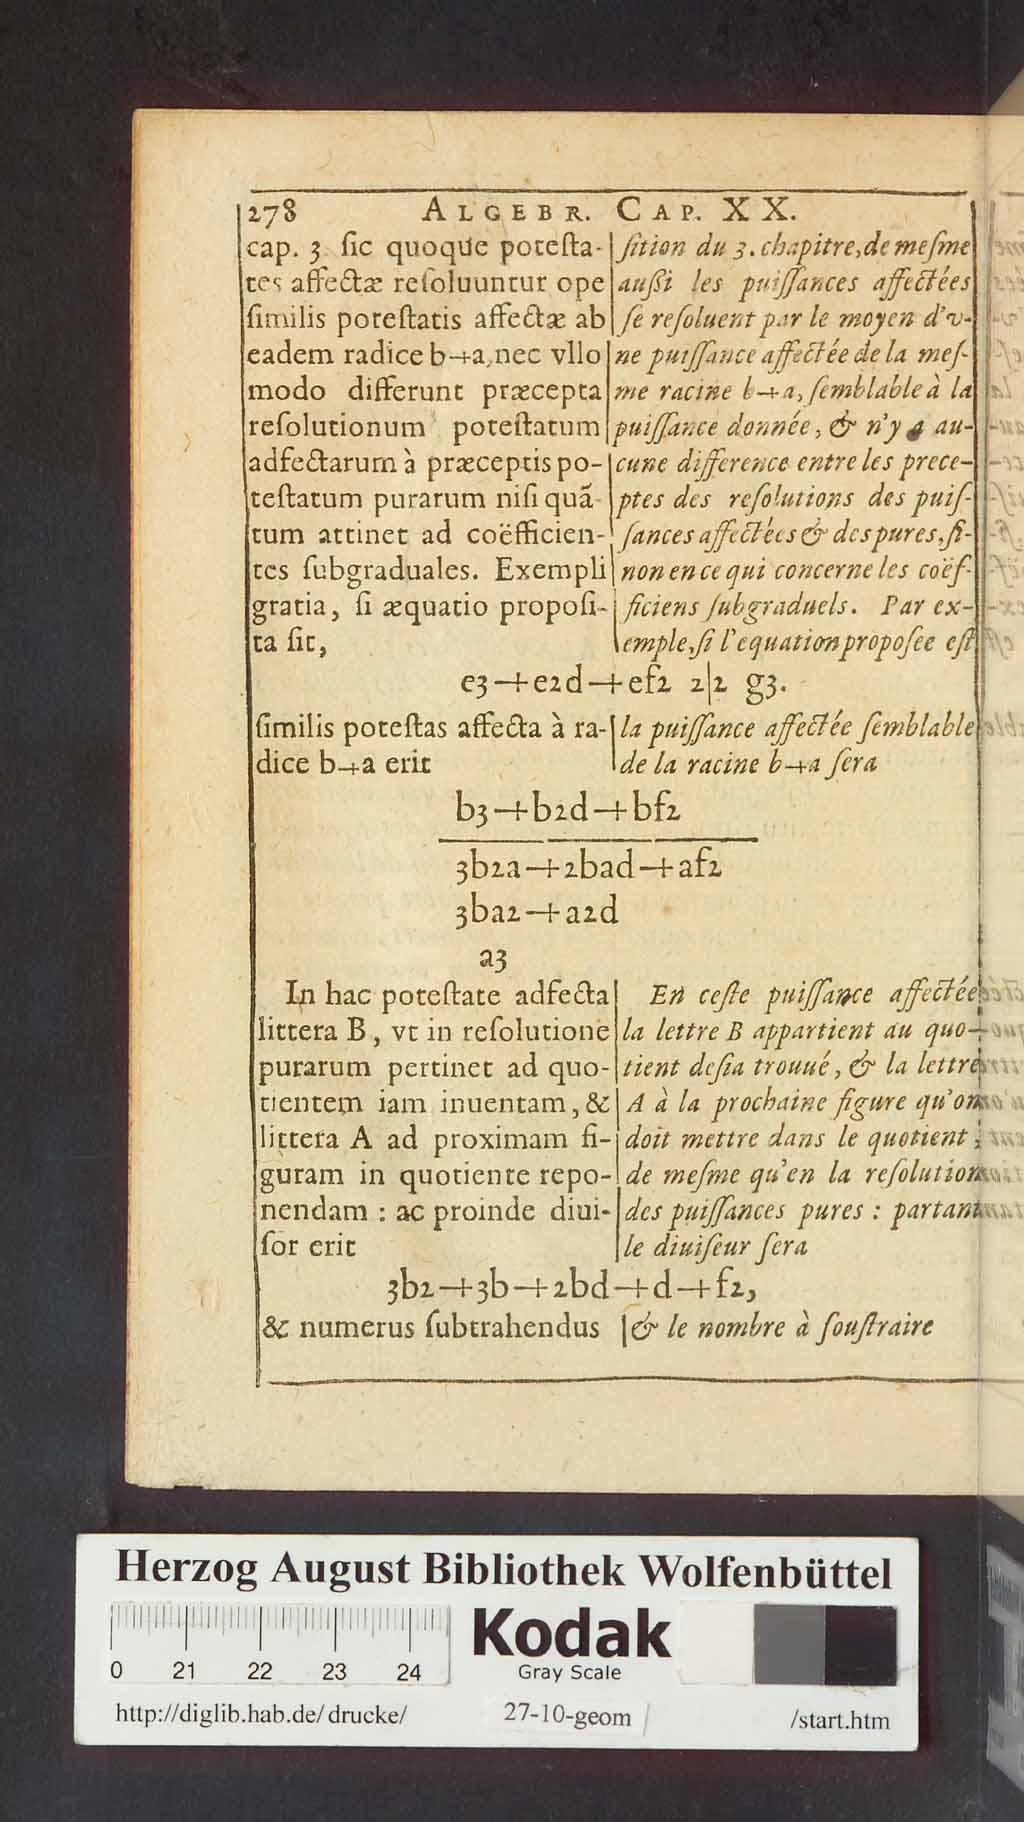 278 ALGEBR. CAP. XX.
cap. 3 ſic quoque poteſta-
tes affectæ reſoluuntur ope
ſimilis poteſtatis affectæ ab
eadem radice b-+a, nec vllo
modo differunt præcepta
reſolutionum poteſtatum
adfectarum à præceptis po-
teſtatum purarum niſi quã-
tum attinet ad coëfficien-
tes ſubgraduales. Exempli
gratia, ſi æquatio propoſi-
ta ſit,
ſition du 3. chapitre, de meſme
auſſi les puiſſances affectées
ſe reſoluent par le moyen d'v-
ne puiſſance affectée de la meſ-
me racine b-+a, ſemblable à la
puiſſance donnée, & n'y a au-
cune difference entre les prece-
ptes des reſolutions des puiſ-
ſances affectées & des pures, ſi-
non en ce qui concerne les coëf-
ficiens ſubgraduels. Par ex-
emple, ſi l'equation propoſée eſt
e3-+e2d-+ef2 2|2 g3.
ſimilis poteſtas affecta à ra-
dice b-+a erit
la puiſſance affectée ſemblable
de la racine b-+a ſera
b3-+b2d-+bf2
3b2a-+2bad-+af2
3ba2-+a2d
a3
In hac poteſtate adfecta
littera B, vt in reſolutione
purarum pertinet ad quo-
tientem iam inuentam, &
littera A ad proximam fi-
guram in quotiente repo-
nendam : ac proinde diui-
ſor erit
En ceſte puiſſance affectée
la lettre B appartient au quo-
tient deſia trouué, & la lettre
A à la prochaine figure qu'on
doit mettre dans le quotient,
de meſme qu'en la reſolution
des puiſſances pures : partant
le diuiſeur ſera
3b2-+3b-+2bd-+d-+f2,
& numerus ſubtrahendus
& le nombre à ſouſtraire
Herzog August Bibliothek Wolfenbüttel
0 21 22 23 24
Kodak
Gray Scale
http://diglib.hab.de/drucke/ 27-10-geom /start.htm